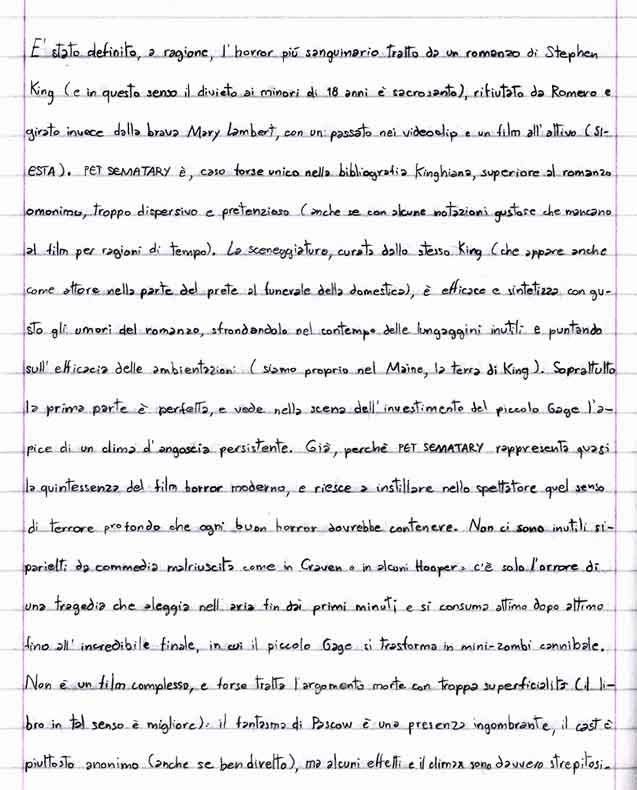 E' stato definito, a ragione, l'horror più sanguinario tratto da un romanzo di Stephen
King (e in questo senso il divieto ai minori di 18 anni è sacrosanto), rifiutato da Romero e
girato invece dalla brava Mary Lambert, con un passato nei videoclip e un film all'attivo (SI-
ESTA). PET SEMATARY è, caso forse unico nella bibliografia Kinghiana, superiore al romanzo
omonimo, troppo dispersivo e pretenzioso (anche se con alcune notazioni gustose che mancano
al film per ragioni di tempo). La sceneggiatura, curata dallo stesso King (che appare anche
come attore nella parte del prete al funerale della domestica), è efficace e sintetizza con gu-
sto gli umori del romanzo, sfrondandolo nel contempo delle lungaggini inutili e puntando
sull'efficacia delle ambientazioni (siamo proprio nel Maine, la terra di King). Soprattutto
la prima parte è perfetta, e vede nella scena dell'investimento del piccolo Gage l'a-
pice di un clima d'angoscia persistente. Già, perchè PET SEMATARY rappresenta quasi
la quintessenza del film horror moderno, e riesce a instillare nello spettatore quel senso
di terrore profondo che ogni buon horror dovrebbe contenere. Non ci sono inutili si-
parietti da commedia malriuscita come in Craven o in alcuni Hooper: c'è solo l'orrore di
una tragedia che aleggia nell'aria fin dai primi minuti e si consuma attimo dopo attimo
fino all'incredibile finale, in cui il piccolo Gage si trasforma in mini-zombi cannibale.
Non è un film complesso, e forse tratta l'argomento morte con troppa superficialità (il li-
bro in tal senso è migliore): il fantasma di Pascow è una presenza ingombrante, il cast è
piuttosto anonimo (anche se ben diretto), ma alcuni effetti e il climax sono davvero strepitosi.